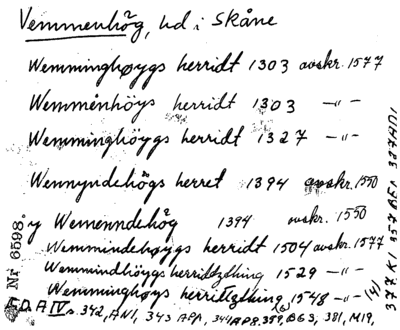 Vemmenhög, hd i Skåne
Wemminghøygs herridt 1303 avskr. 1577
Wemmenhöys herridt 1303 -"-
Wemminghöygs herridt 1327 -"-
Wennyndehögs herret 1394 avskr. 1550
y Wemenndehög 1394 avskr. 1550
Wemmindehøygs herridt 1504 avskr. 1577
Wemmindhöyggs herridtzthing 1529 -"-
Wemminghöygs herridtzthing 1548 -"-
F.D. A IV: 342, AN1, 343 AFA, 344 AP8, 359, BG3, 381, M19,
Nr 6598